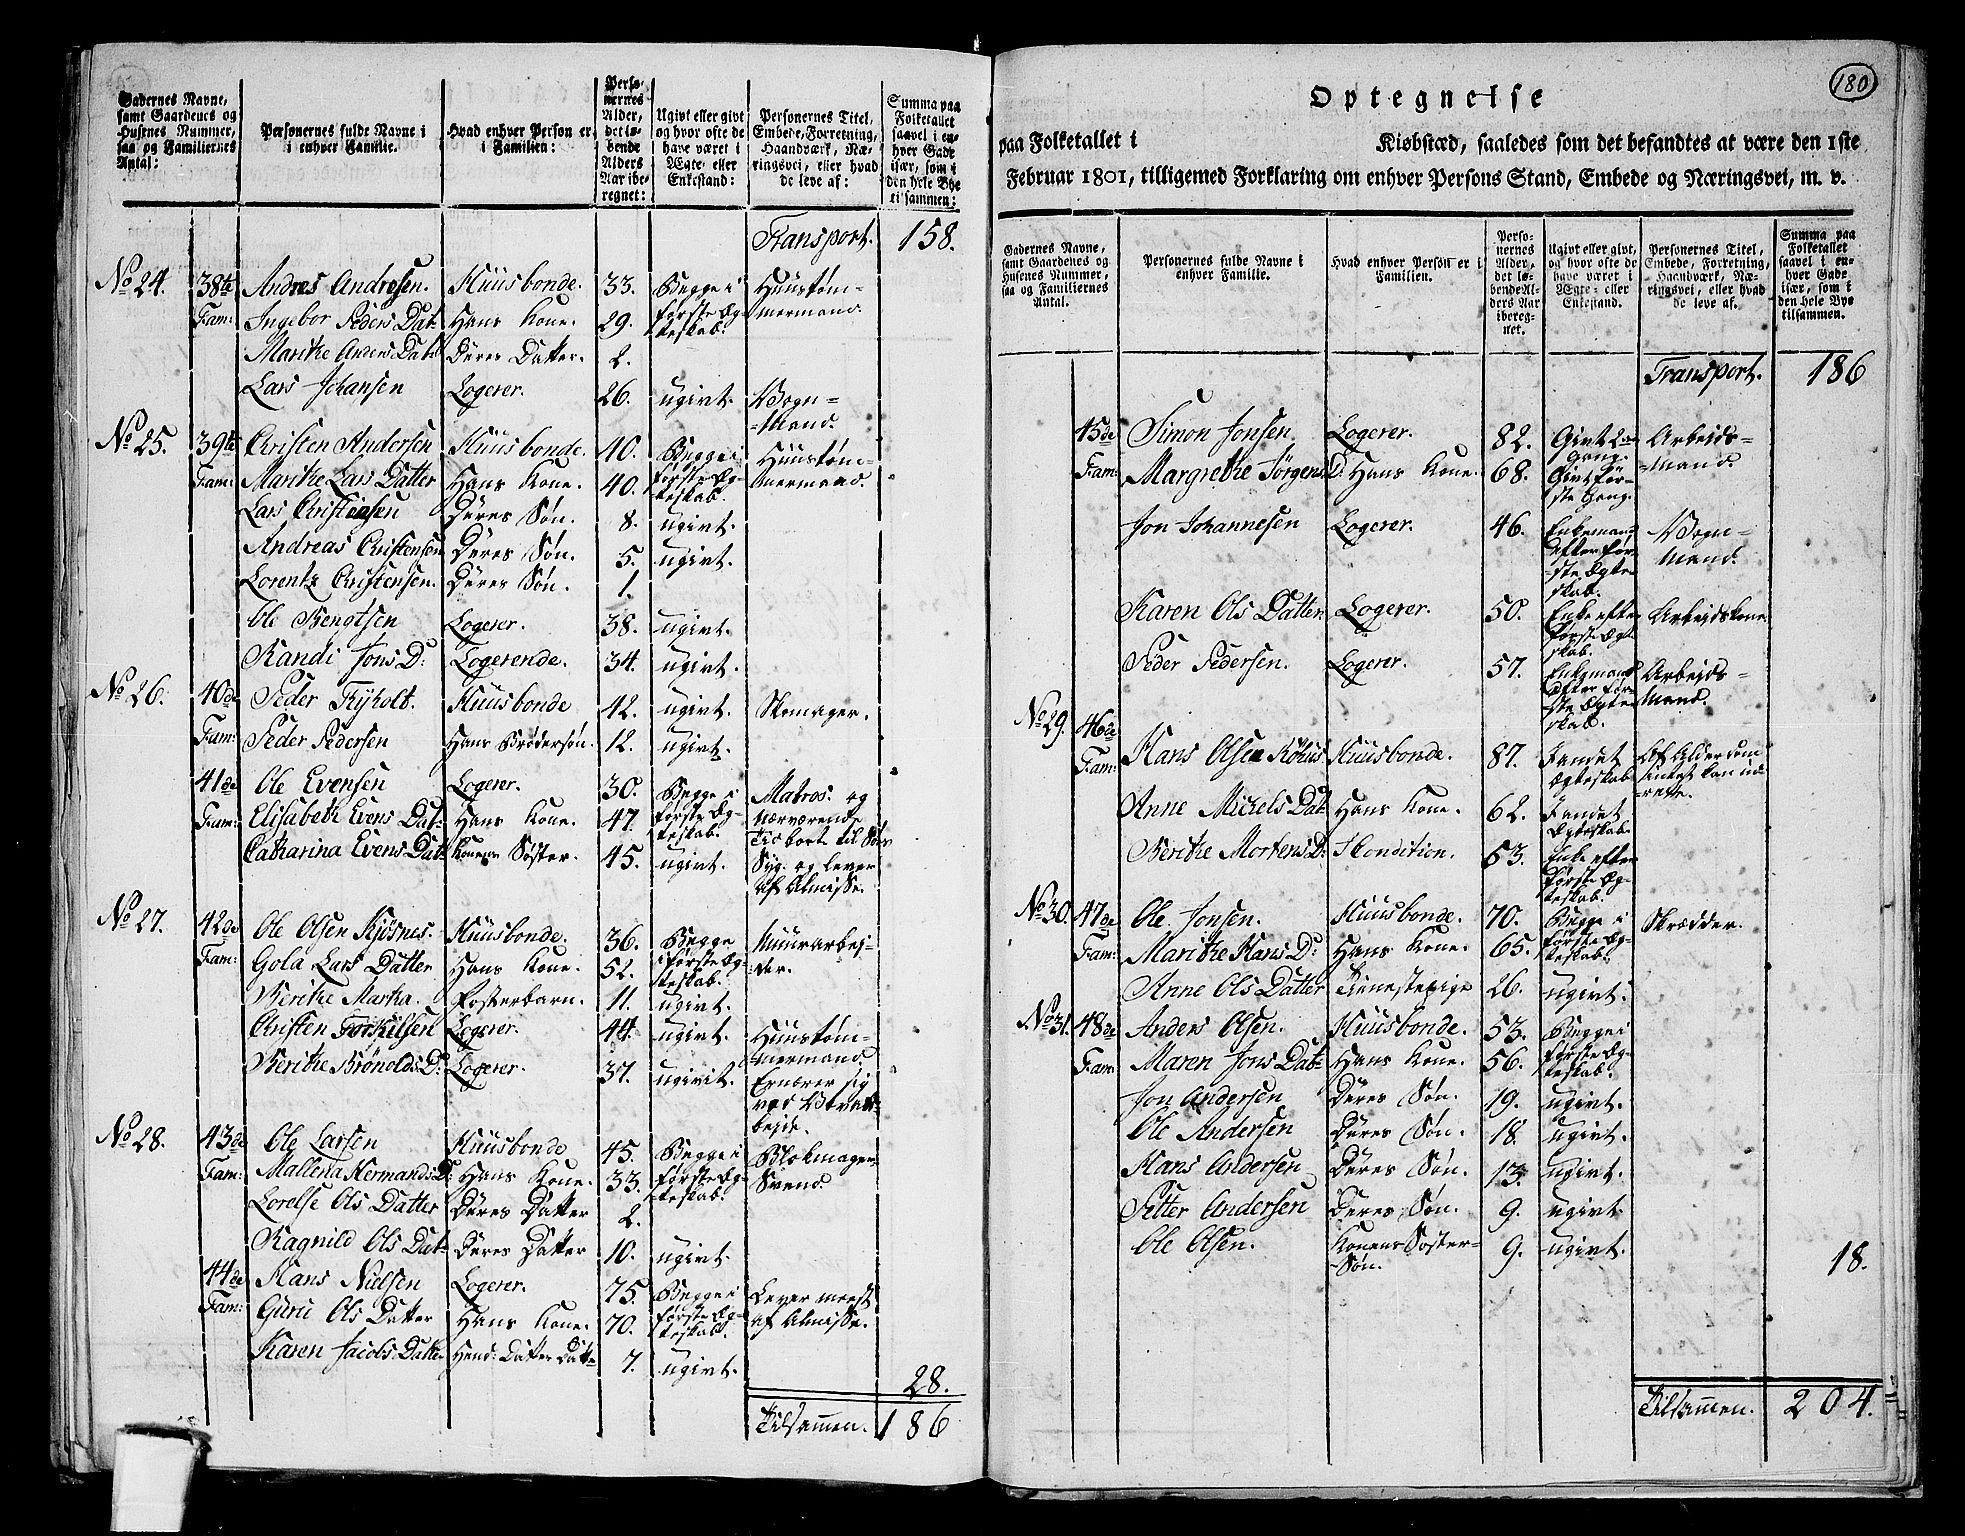 Gadernes Navne, samt Gaardenes og Husenes Nummer, saa og Familiernes Antal:
Personernes fulde Navne i enhver Familie.
Hvad enhver Person er i Familien:
Personernes Alder, det løbende Alders Aar iberegnet:
Ugivt eller givt og hvor ofte de have været i Ægte- eller Enkestand:
Personernes Titel, Embede, Forretning, Haandværk, Næringsvei, eller hvad de leve af:
Summa paa Folketallet saavel i enhver Gade især, som i den hele Bye tilsammen:
Transport. 158.
No 24. 38te Fam: Andres Andresen. Huusbonde. 33. Begge i første Ægteskab. Huustømmermand.
Ingebor Peders Dat: Hans Kone. 29.
Marithe Anders Dat: Deres Datter. 2.
Lars Johansen Logerer. 26. ugivt. Vogn=Mand.
No 25. 39te Fam: Christen Andersen Huusbonde. 40. Begge i første Ægteskab. Huustømmermand.
Marithe Lars Datter Hans Kone. 40.
Lars Christensen Deres Søn. 8. ugivt.
Andreas Christensen Deres Søn. 5. ugivt.
Lorentz Christensen. Deres Søn. 1.
Ole Bengtsen Logerer. 38. ugivt.
Randi Jons D: Logerende. 34. ugivt.
No 26. 40de Fam: Peder Fryholt. Huusbonde 42. ugivt. Skomager.
Peder Pedersen Hans Brodersøn. 12. ugivt.
41de Fam: Ole Evensen Logerer. 30. Begge i første Ægteskab. Matros. og nærværende Tid borte til Søes
Elisabeth Evens Dat: Hans Kone. 47.
Catharina Evens Dat: Konens Søster. 45. ugivt. Syg. og lever af Almisse.
No 27. 42de Fam: Ole Olsen Kjøsnes. Huusbonde. 36. Begge i første Ægteskab. Muurarbejder.
Gola Lars Datter Hans Kone. 52.
Berithe Martha. Fosterbarn. 11. ugivt.
Christen Torkilsen Logerer. 44. ugivt. Huustømmermand.
Berithe Brønolds D: Logerer. 37. ugivit. Ernærer sig ved
No 28. 43de Fam: Ole Larsen Huusbonde 45. Begge i første Ægteskab. Blokmager Svend.
Mallena Hermands D: Hans Kone. 33.
Lorelse Ols Datter Deres Datter 2.
Ragnild Ols Dat: Deres Datter 10. ugivt.
44de Fam: Hans Nielsen Logerer. 75. Begge i første Ægteskab. Lever meest af Almisse.
Guru Ols Datter Hans Kone. 70.
Karen Jacobs Datter Hend: Datter Datte 7. ugivt.
28.
Tilsammen. 186
180
Optegnelse
paa Folketallet i Kiøbstæd, saaledes som det befandtes at være den 1ste
Februar 1801, tilligemed Forklaring om enhver Persons Stand, Embede og Næringsvei, m. v.
Gadernes Navne, samt Gaardenes og Husenes Nummer, saa og Familiernes Antal.
Personernes fulde Navne i enhver Familie.
Hvad enhver Person er i Familien.
Personernes Alder, det løbende Alders Aar iberegnet.
Ugivt eller givt, og hvor ofte de have været i Ægte- eller Enkestand.
Personernes Titel, Embede, Forretning, Haandværk, Næringsvei, eller hvad de leve af.
Summa paa Folketallet saavel i enhver Gade især, som i den hele Bye tilsammen.
Transport. 186
45de Fam: Simon Jonsen Logerer. 82. Givt 2den Gang. Arbeids=mand.
Margrethe Jørgens D: Hans Kone. 68. Givt første Gang.
Jon Johannesen Logerer. 46. Enkemand efter første Ægteskab. Vogn=Mand.
Karen Ols Datter Logerer. 50. Enke efter første Ægteskab. Arbeidskone.
Peder Pedersen. Logerer. 57. Enkemand efter første Ægteskab. Arbeids=Mand.
No 29. 46de Fam: Hans Olsen Huusbonde. 87. I andet Ægteskab Af Alderdom intet kan udrette.
Anne Michels Dat: Hans Kone. 62. I andet Ægteskab.
Berithe Mortens D: I Kondition. 53. Enke efter første Ægteskab.
No 30. 47de Fam: Ole Jonsen. Huusbonde. 70. Begge i første Ægteskab. Skrædder.
Marithe Hans D: Hans Kone. 65.
Anne Ols Datter Tienestepige 26. ugivt.
No 31. 48de Fam: Anders Olsen. Huusbonde. 53. Begge i første Ægteskab.
Maren Jons Dat: Hans Kone. 56.
Jon Andersen Deres Søn. 19. ugivt.
Ole Andersen Deres Søn. 18. ugivt.
Hans Andersen Deres Søn. 13. ugivt.
Petter Andersen Deres Søn. 9. ugivt.
Ole Olsen. Konens Søster=Søn. 9. ugivt.
18.
Tilsammen. 204.